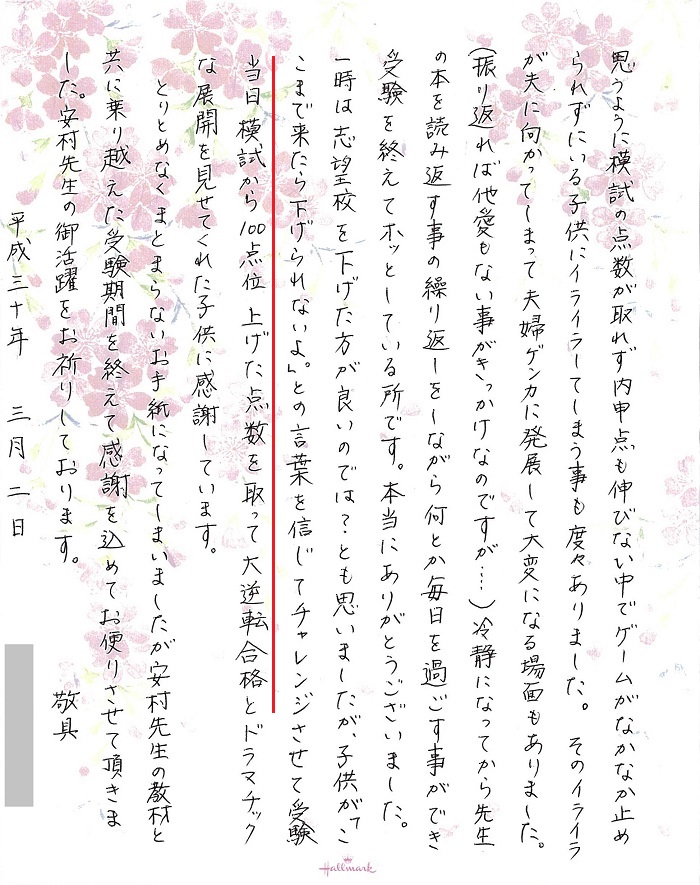 思うように模試の点数が取れず内申点も伸びない中でゲームがなかなか止め
られずにいる子供にイライラしてしまう事も度々ありました。そのイライラ
が夫に向かってしまって夫婦ゲンカに発展して大変になる場面もありました。
(振り返れば他愛もない事がきっかけなのですが…)冷静になってから先生
の本を読み返す事の繰り返しをしながら何とか毎日を過ごす事ができ
受験を終えてホッとしている所です。本当にありがとうございました。
一時は志望校を下げた方が良いのでは?とも思いましたが、子供が「こ
こまで来たら下げられないよ。」との言葉を信じてチャレンジさせて受験
当日模試から100点位上げた点数を取って大逆転合格とドラマチック
な展開を見せてくれた子供に感謝しています。
とりとめなくまとまらないお手紙になってしまいましたが安村先生の教材と
共に乗り越えた受験期間を終えて感謝を込めてお便りさせて頂きま
した。安村先生の御活躍をお祈りしております。
敬具
平成三十年 三月二日
Hallmark